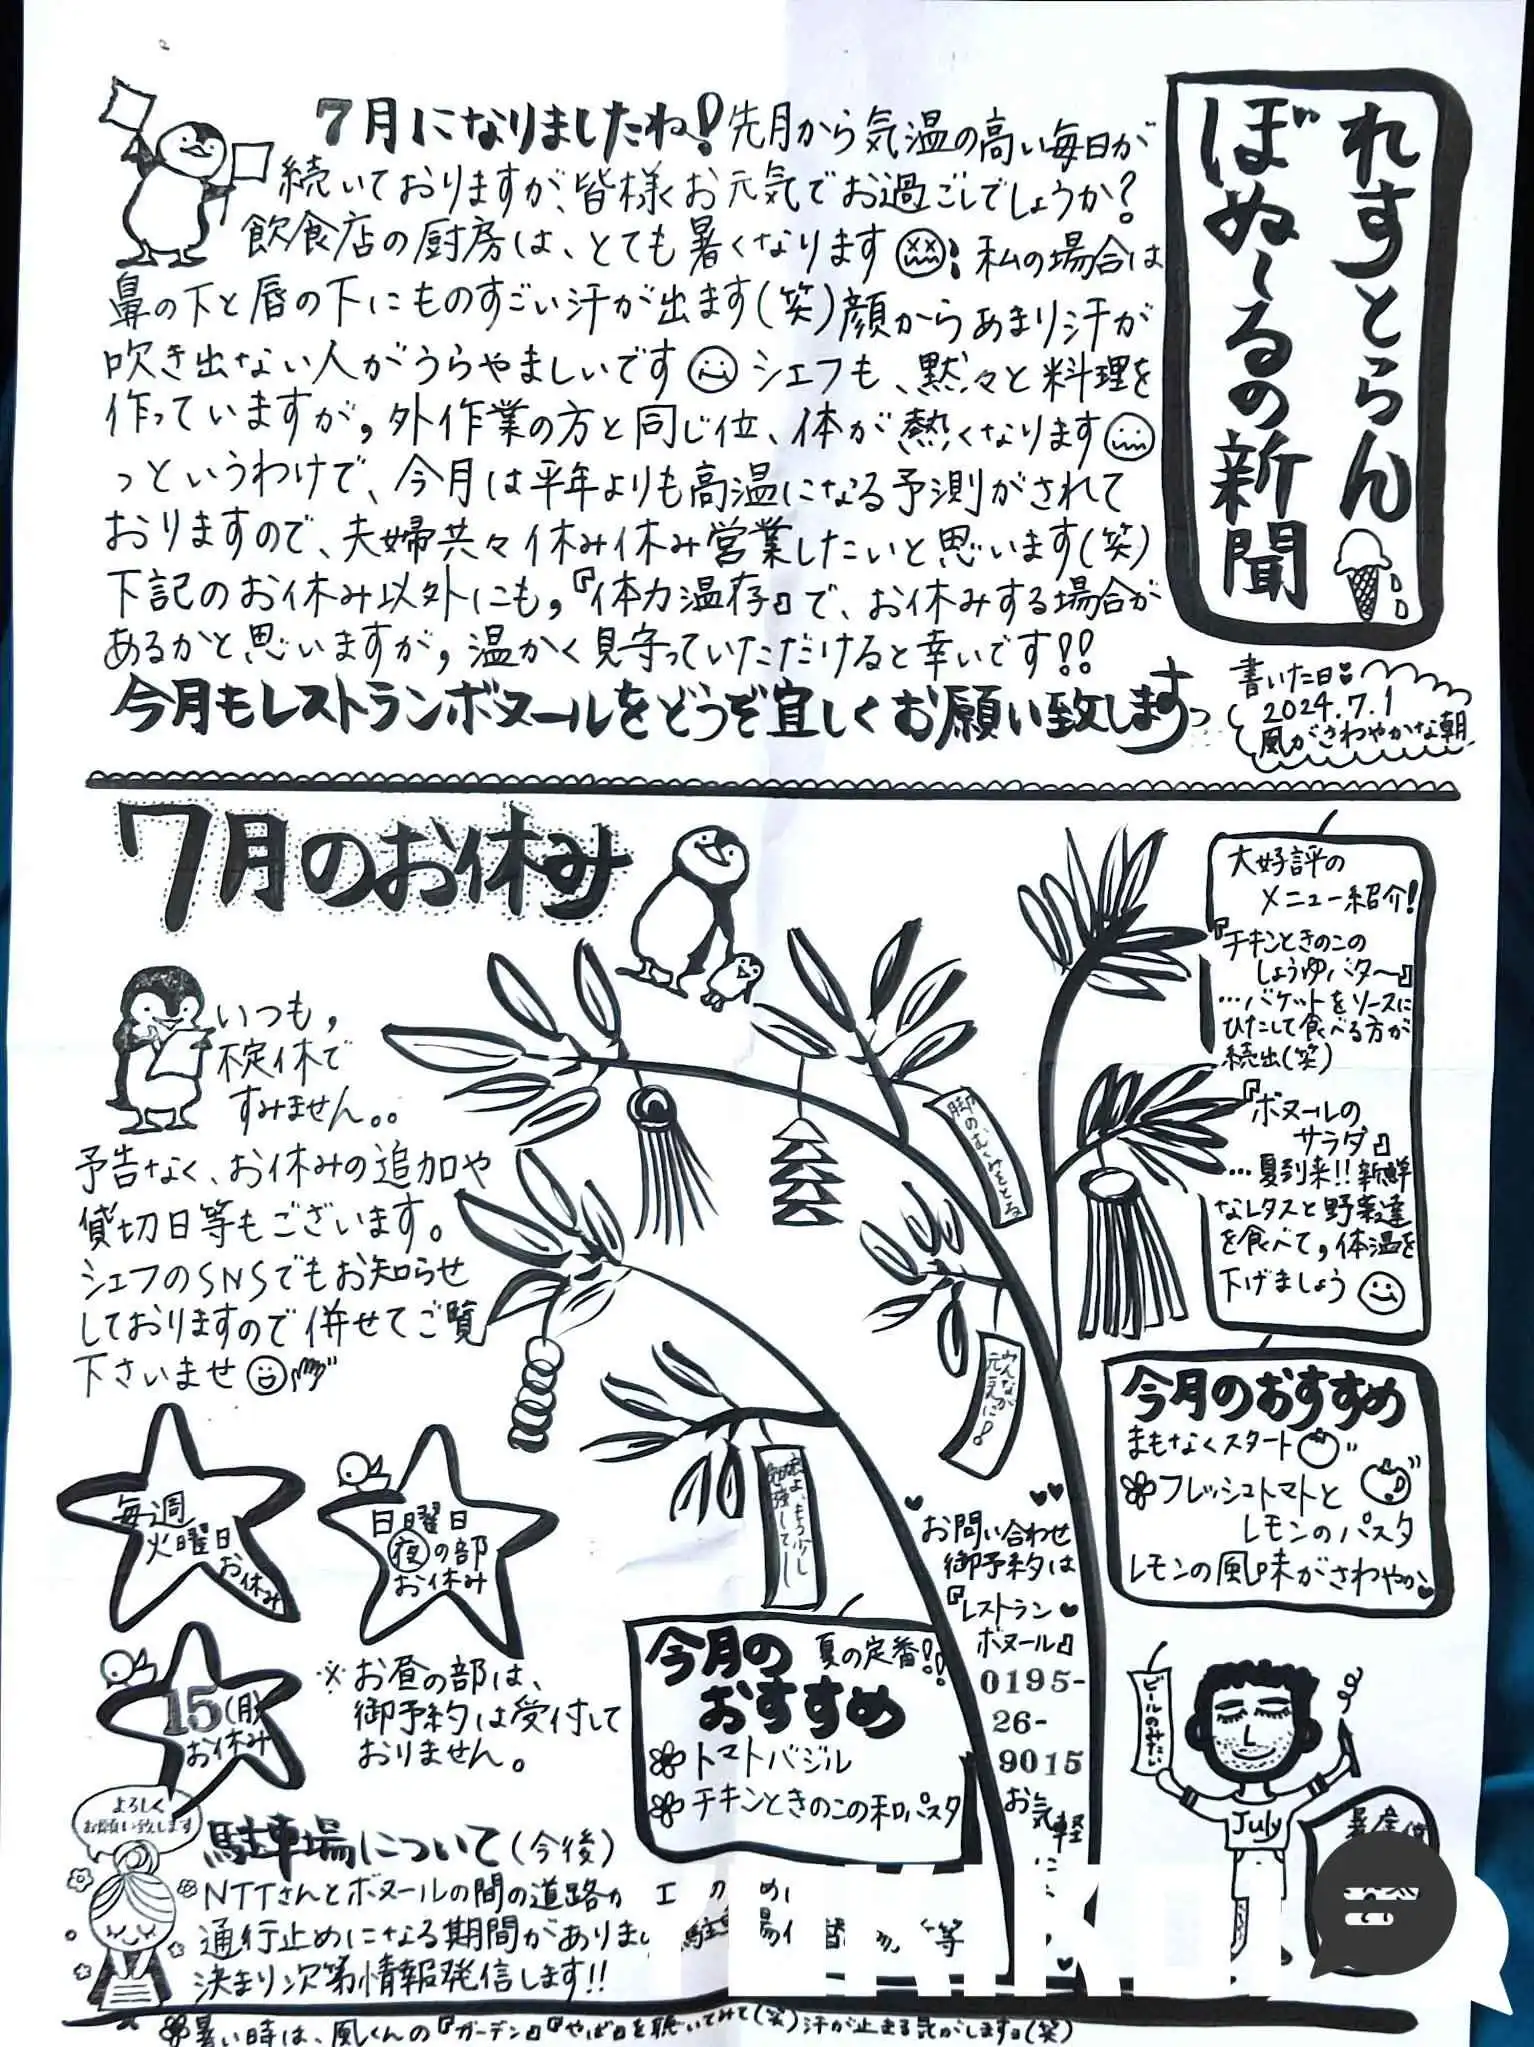 れすとらん
ぼぬ〜るの新聞
7月になりましたね！先月から気温の高い毎日が
続いておりますが、皆様くお元気でお過ごしでしょうか？
飲食店の厨房は、とても暑くなります 私の場合は
鼻の下と唇の下にものすごい汗が出ます(笑)顔からあまり汗が
吹き出ない人がうらやましいです シェフも、黙々と料理を
作っていますが,外作業の方と同じ位、体が熱くなります
っというわけで、今月は平年よりも高温になる予測がされて
おりますので、夫婦共々休み休み営業したいと思います(笑)
下記のお休み以外にも,『体力温存』で、お休みする場合が
あるかと思いますが,温かく見守っていただけると幸いです!!
今月もレストランボヌールをどうぞ宜しくお願い致しますっ
書いた日
2024.7.1
風がさわやかな朝
7月のお休み
いつも,
不定休で
すみません。。
予告なく、お休みの追加や
貸切日等もございます。
シェフのSNSでもお知らせ
しておりますので併せてご覧
下さいませ
毎週
火曜日
お休み
日曜日
夜の部
お休み
15(月)
お休み
※お昼の部は、
御予約は受付して
おりません。
脚のむくみをとる
みんなが
元気に!
大好評の
メニュー紹介!
『チキンときのこの
しょうゆバター』
…バケットをソースに
ひたして食べる方が
続出(笑)
『ボヌールの
サラダ』
…夏到来!!新鮮
なレタスと野菜達
を食べて,体温を
下げましょう
今月のおすすめ
まもなくスタート
フレッシュトマトと
レモンのパスタ
レモンの風味がさわやか
お問い合わせ
御予約は
『レストラン
ボヌール』
0195-
26-
9015
お気軽に
今月の
おすすめ
夏の定番!!
トマトバジル
チキンときのこの和パスタ
ビールのみたい
July
よろしく
お願い致します
駐車場について(今後)
NTTさんとボヌールの間の道路が
通行止めになる期間がありま
決まり次第情報発信します!!
暑い時は、風くんの『ガーデン』『やば』を聴いてみて(笑)汗が止まる気がします。(笑)